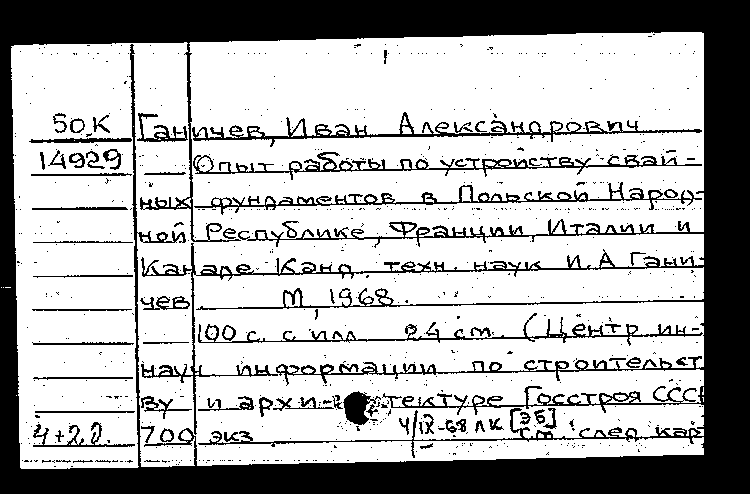 50.К Ганичев, Иван Александрович
14929 Опыт работы по устройству свай-
ных фундаментов в Польской Народ-
ной Республике, Франции, Италии и
Канаде Канд. техн. наук И.А Гани-
чев. М, 1968.
100 с. с илл 24 см. (Центр ин-т
науч информации по строительст
ву и архи-тектуре Госстроя СССР
4+2.0. 700 экз 4/IX-68 ЛК [ЭБ]
см. след кар